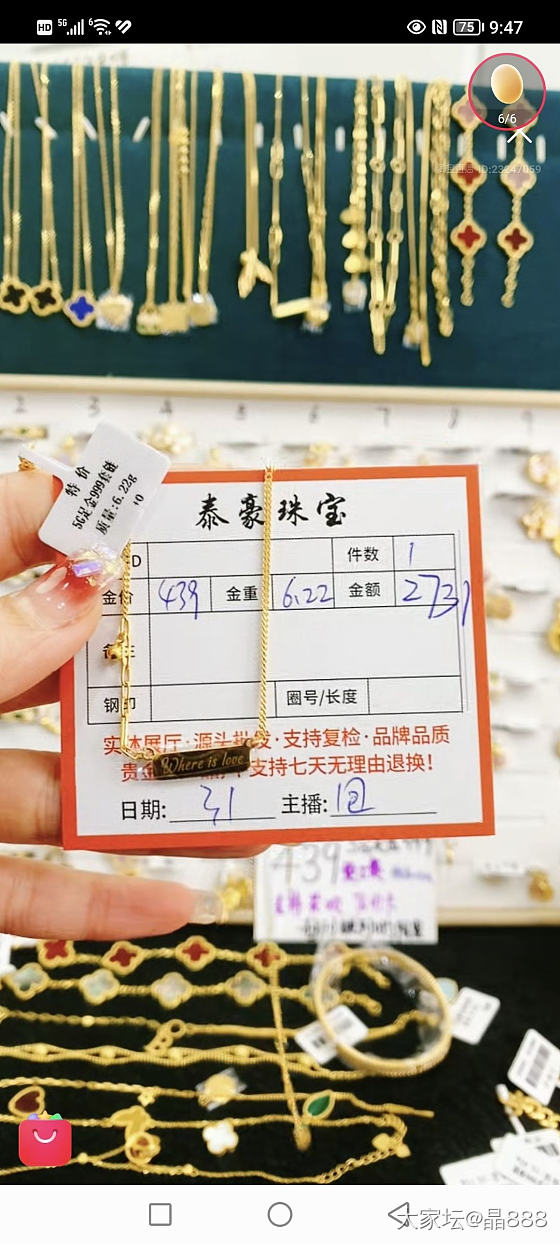 HD 5G 6 75 9:47
6/6
ID:23247059
2 3 4 5 6 7 8 9
特价
5G足金999套链
质量:6.22g
泰豪珠宝
件数 1
金价 439 金重 6.22 金额 2731
钢印 圈号/长度
实体展厅·源头批发·支持复检·品牌品质
支持七天无理由退换!
Where is love
日期: 31 主播:
439
大家坛@晶888